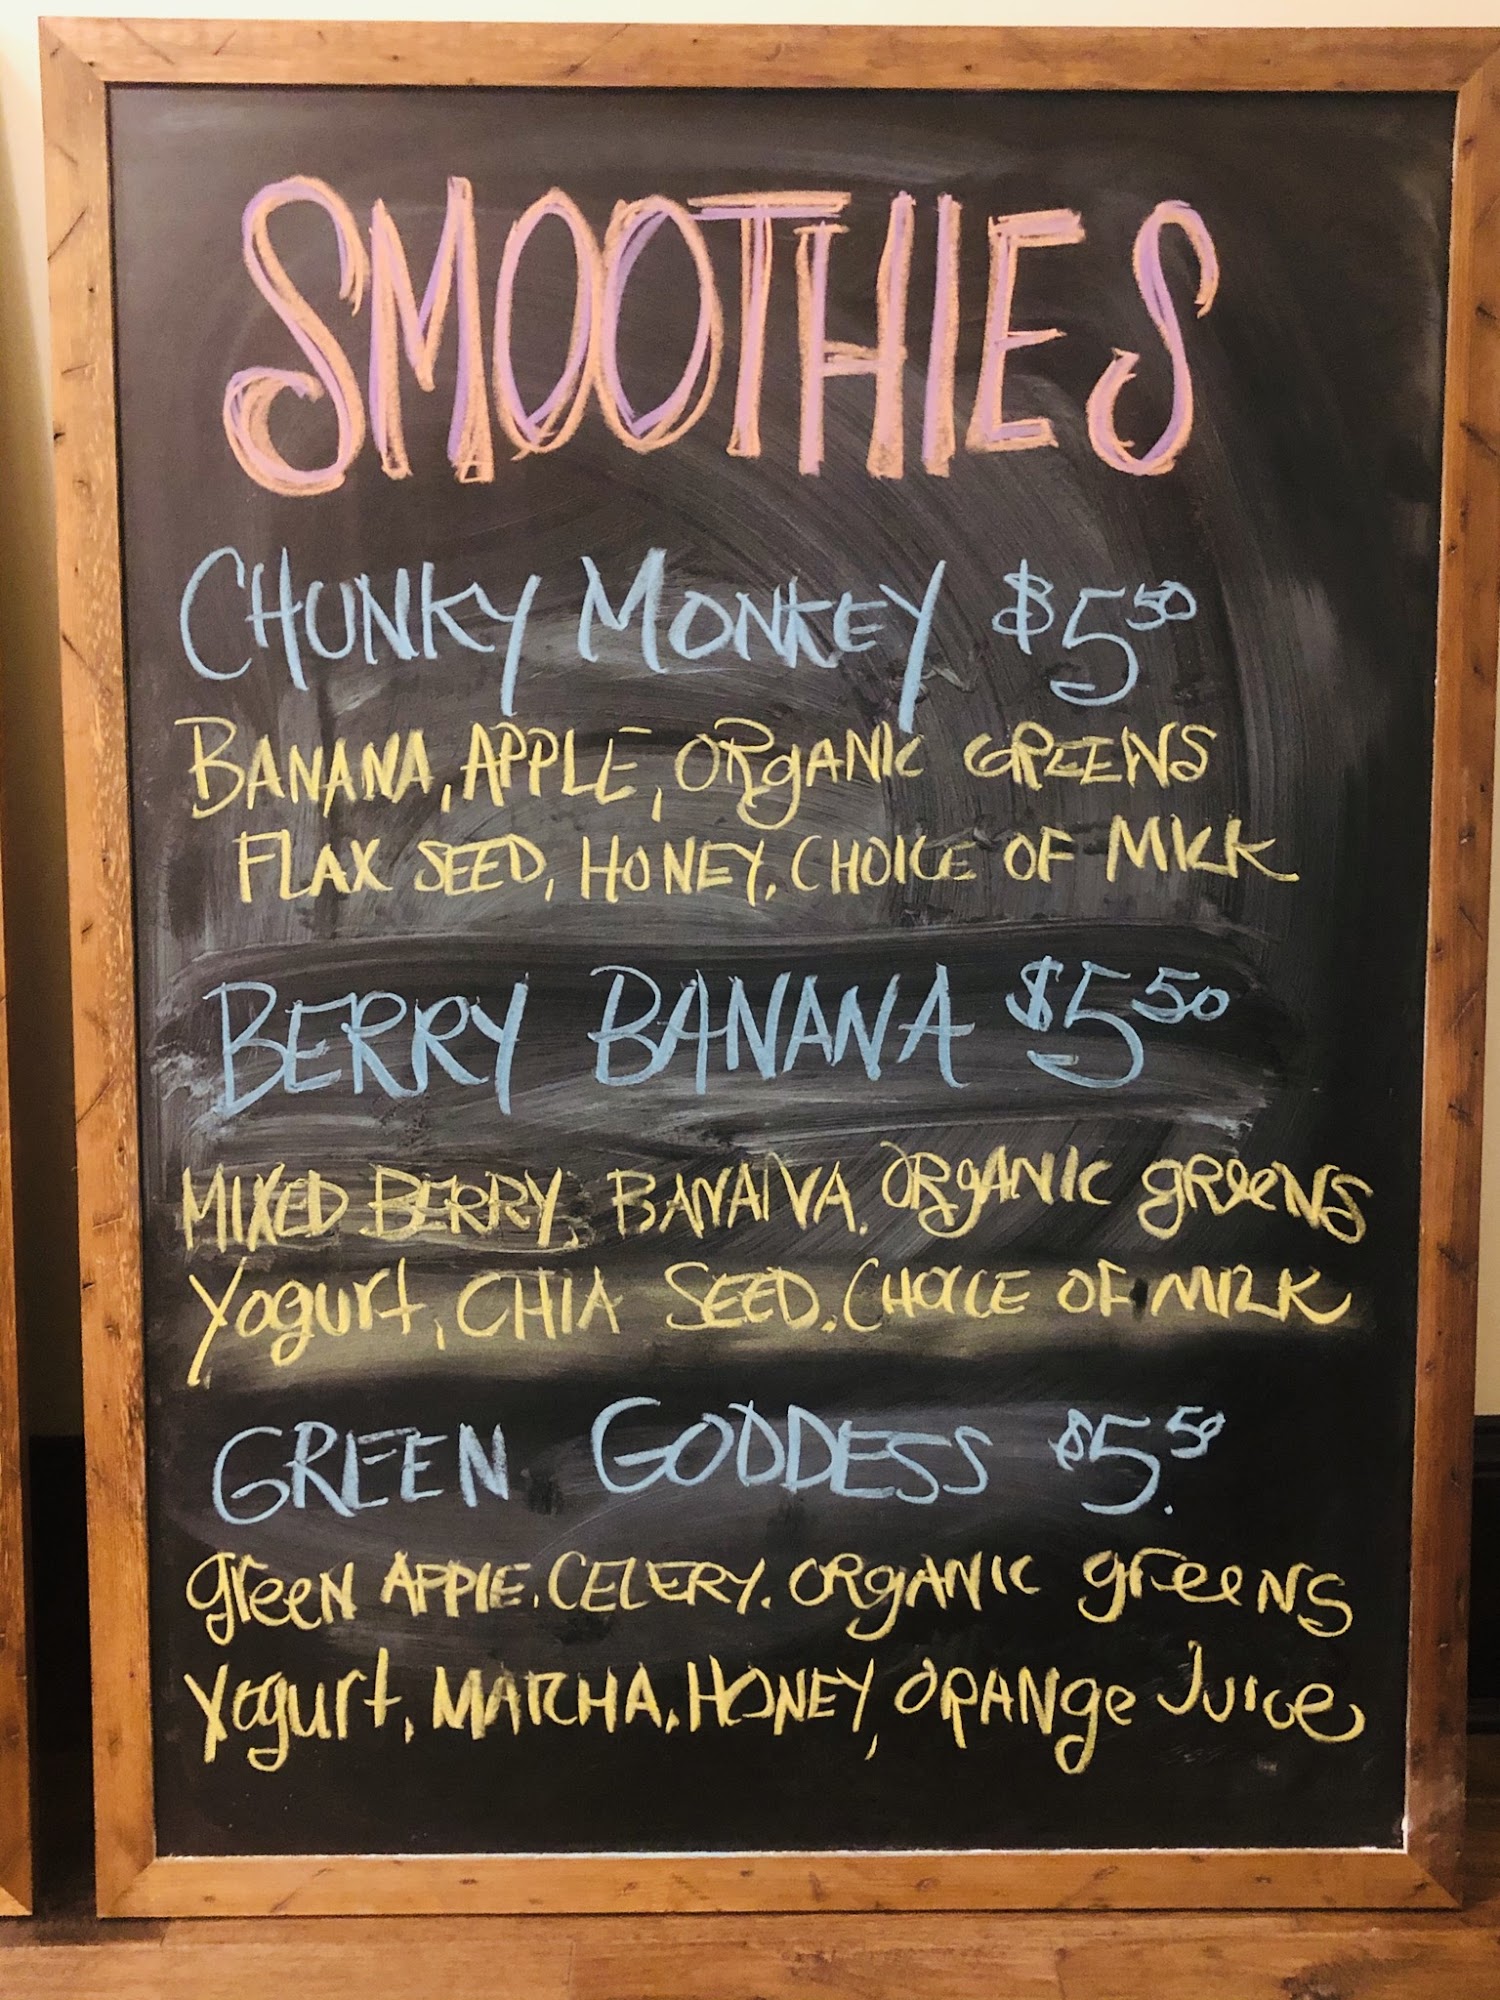 SMOOTHIES
CHUNKY MONKEY $5.50
BANANA, APPLE, ORgANIC GREENS
FLAX SEED, HONEY, CHOICE OF MILK
BERRY BANANA $5 50
MIXED BERRY, BANANA, ORgANIC gReeNS
Yogurt, CHIA SEED, CHOICE OF MILK
GREEN GODDESS $5.50
green APPlE, CELERY, ORgANIC greeNS
Yogurt, MATCHA, HONEY, ORANge Juice